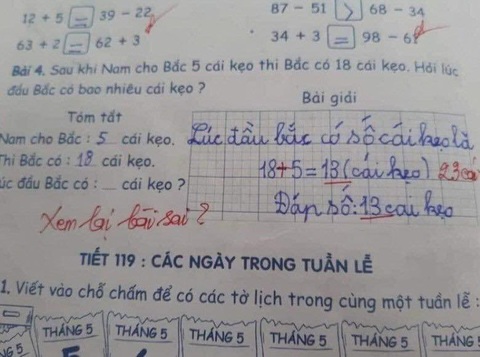 12 + 5 = 39 - 22
87 - 51 > 68 - 34
63 + 2 = 62 + 3
34 + 3 = 98 - 61
Bài 4. Sau khi Nam cho Bắc 5 cái kẹo thì Bắc có 18 cái kẹo. Hỏi lúc
đầu Bắc có bao nhiêu cái kẹo ?
Tóm tắt
Bài giải
Nam cho Bắc : 5 cái kẹo.
Lúc đầu bắc có số cái kẹo là
Thì Bắc có : 18 cái kẹo.
18+5=13 (cái kẹo) 23 cá
úc đầu Bắc có : ... cái kẹo ?
Đáp số: 13 cái kẹo
Xem lại bài sai ?
TIẾT 119 : CÁC NGÀY TRONG TUẦN LỄ
1. Viết vào chỗ chấm để có các tờ lịch trong cùng một tuần lễ :
THÁNG 5 THÁNG 5 THÁNG 5 THÁNG 5 THÁNG 5 THÁNG
NG 5